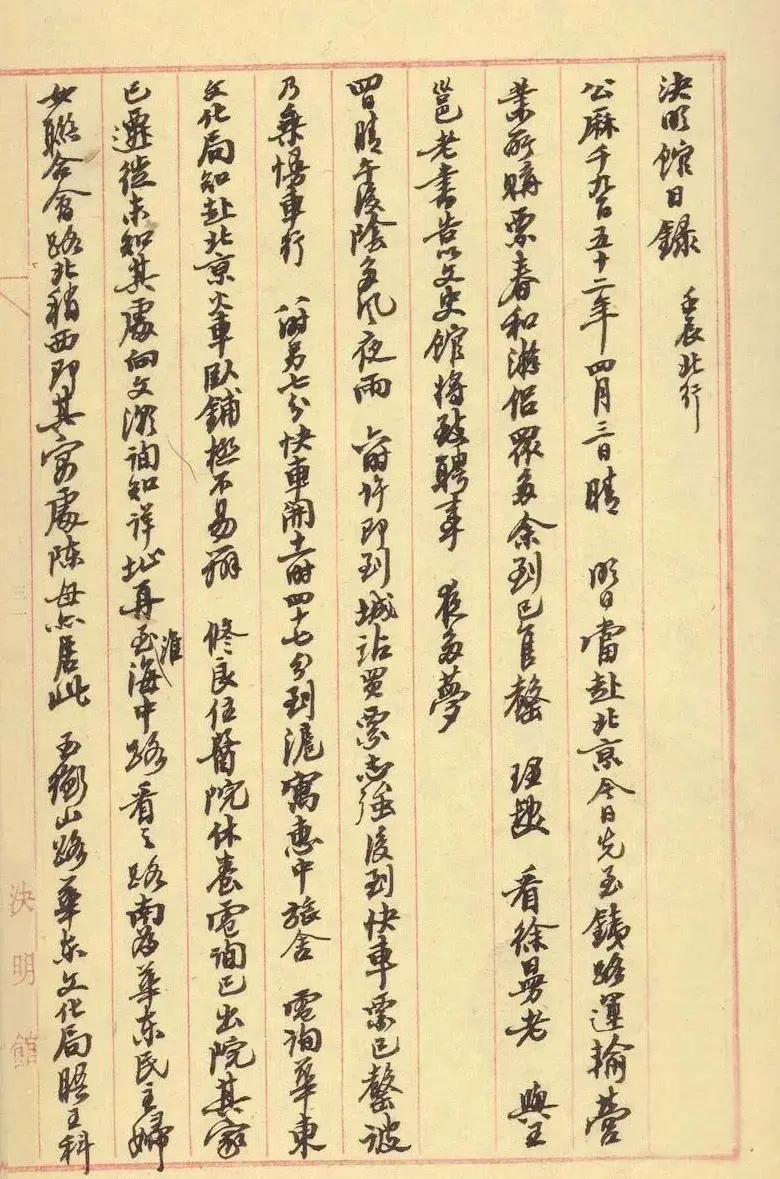 決明館日録　壬辰北行
公厤千九百五十二年四月三日晴　明日當赴北京今日先至鐵路運輸營
業所購票春和游侣眾多余到已售罄　理髮　看徐曼老　與王
邕老書告以文史館將致聘事　夜多夢
四日晴午後陰多風夜雨　六時許即到城站買票志強後到快車票已罄
乃乘慢車行　八時另七分快車開十一時四十七分到滬寓惠中旅舍　電詢華東
文化局知赴北京火車臥鋪極不易辦　修良住醫院休養電詢已出院其家
已遷徙未知其處向文淵詢知詳址再至淮海中路看之路南為華東民主婦
女聯合會路北稍西即其寓處陈母亦居此　至衡山路華东文化局晤王科
決明館